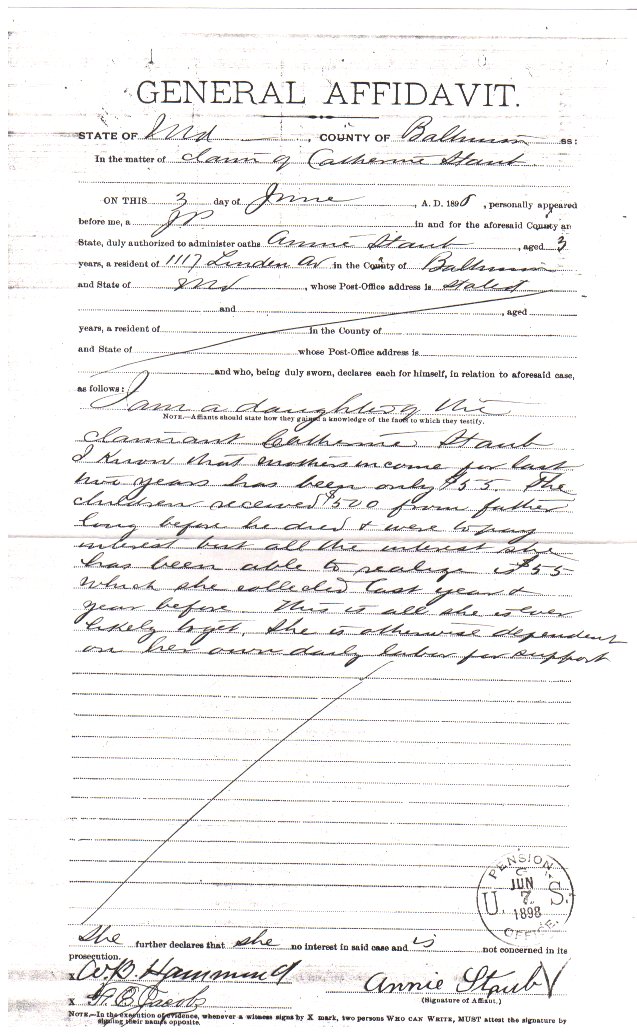 GENERAL AFFIDAVIT.
STATE OF Md , COUNTY OF Baltimore ss:
In the matter of claim of Catherine Staub
ON THIS 3 day of June , A. D. 1898 , personally appeared
before me, a JP in and for the aforesaid County an
State, duly authorized to administer oaths Annie Staub , aged 3
years, a resident of 1117 Linden Av in the County of Baltimore
and State of Md , whose Post-Office address is stated
and , aged
years, a resident of in the County of
and State of whose Post-Office address is
and who, being duly sworn, declares each for himself, in relation to aforesaid case,
as follows: I am a daughter of the
NOTE.—Affiants should state how they gained a knowledge of the facts to which they testify.
claimant Catherine Staub
I know that mothers income for last
two years has been only $55. The
children received $500 from father
long before he died & were to pay
interest but all the interest she
has been able to realize is $55
which she collected last year &
year before. This is all she is ever
likely to get. She is otherwise dependent
on her own daily labor for support
PENSION
JUN
U. 7 S.
1898
OFFICE.
She further declares that she no interest in said case and is not concerned in its
prosecution.
x W.B. Hammond Annie Staub
X Jacobs (Signature of Affiant.)
NOTE.—In the execution of evidence, whenever a witness signs by X mark, two persons WHO CAN WRITE, MUST attest the signature by
signing their names opposite.